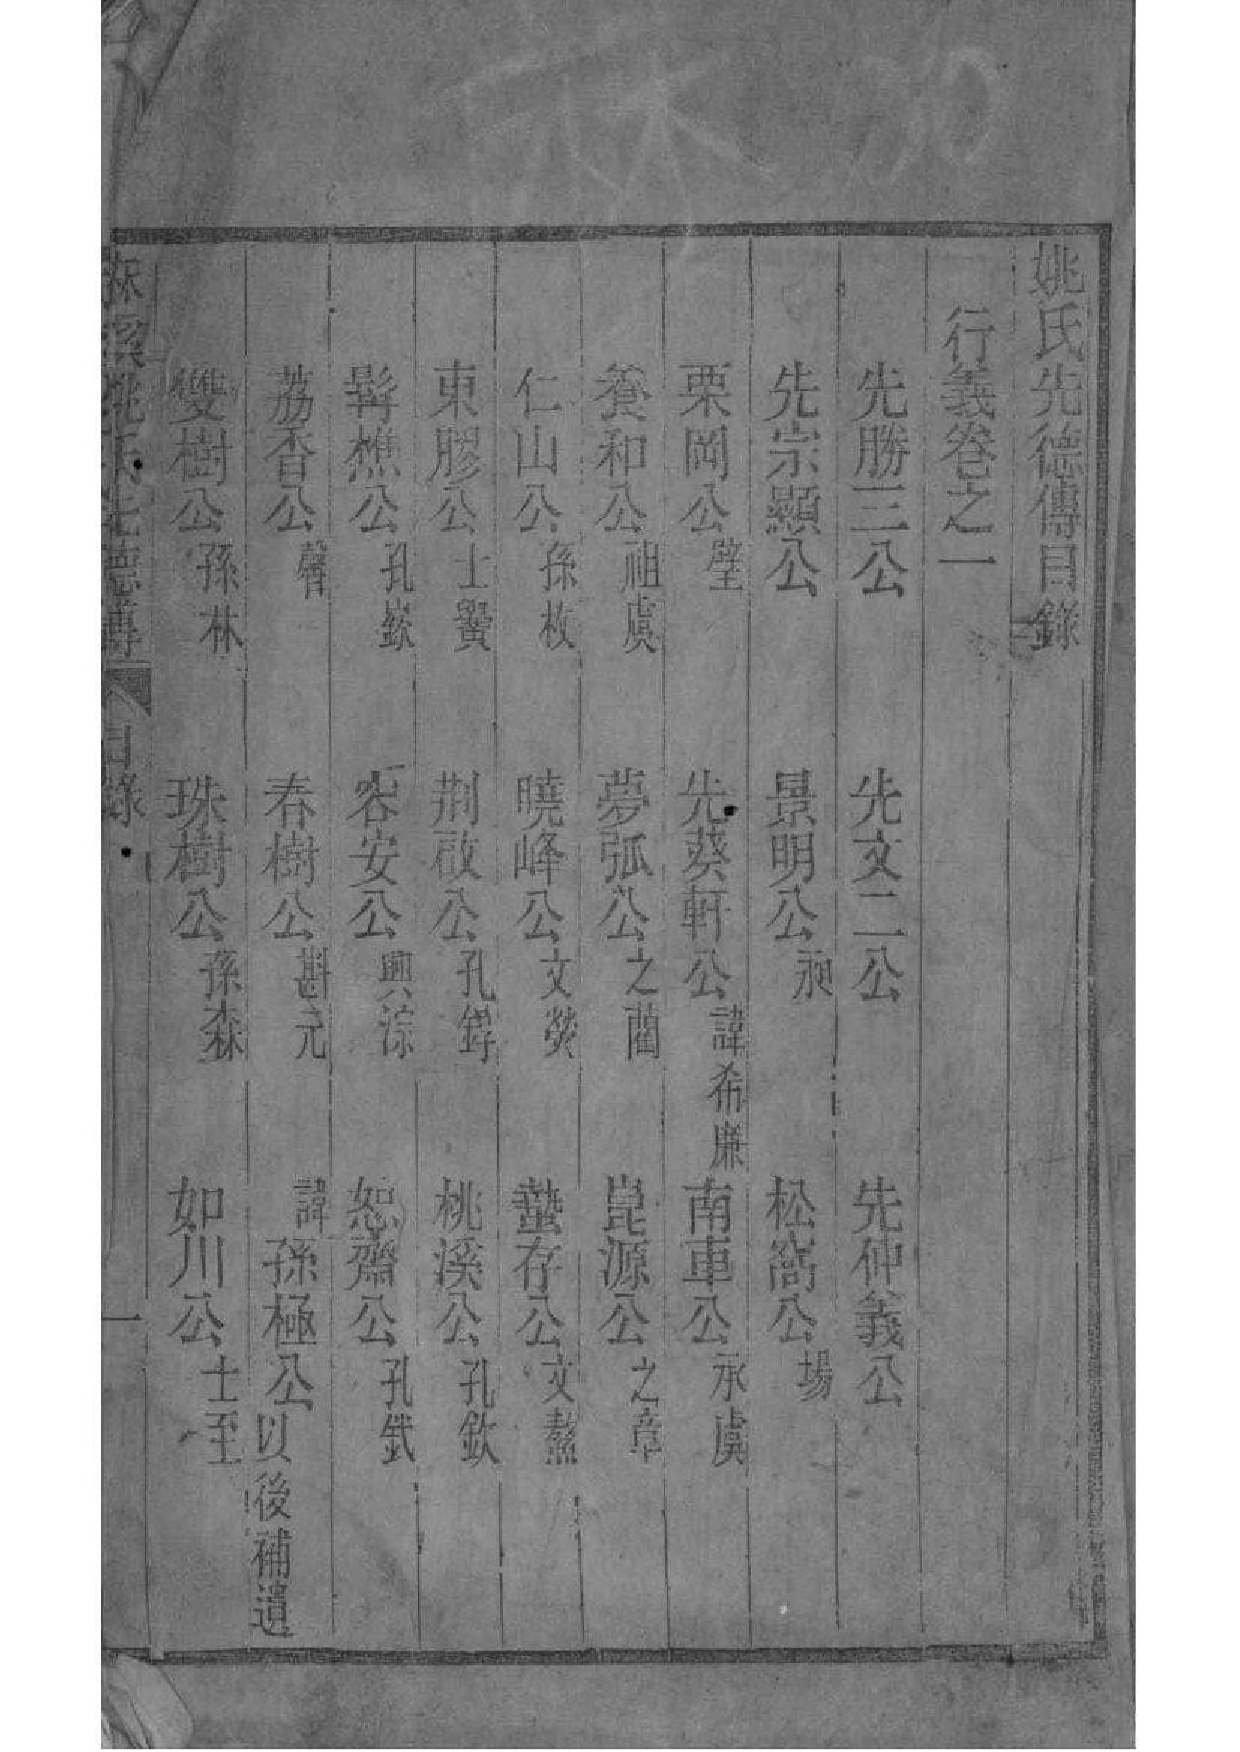 姚氏先德傳目錄
行義卷之一
先勝三公　先文二公　先仲義公
先宗顯公　景明公昶　松窩公場
栗岡公璧　先葵軒公諱希廉　南車公承虞
養和公祖虞　夢弧公之藺　崑源公之章
仁山公孫枚　曉峰公文熒　蟄存公文熬
東膠公士黌　荆啟公孔鋝　桃溪公孔欽
髯樵公孔嶔　客安公興淙　恕齋公孔鉽
荔香公馨　春樹公斟元　諱孫極公以後補遺
雙樹公孫林　珠樹公孫森　如川公士至
麻溪姚氏先德傳　目錄　一